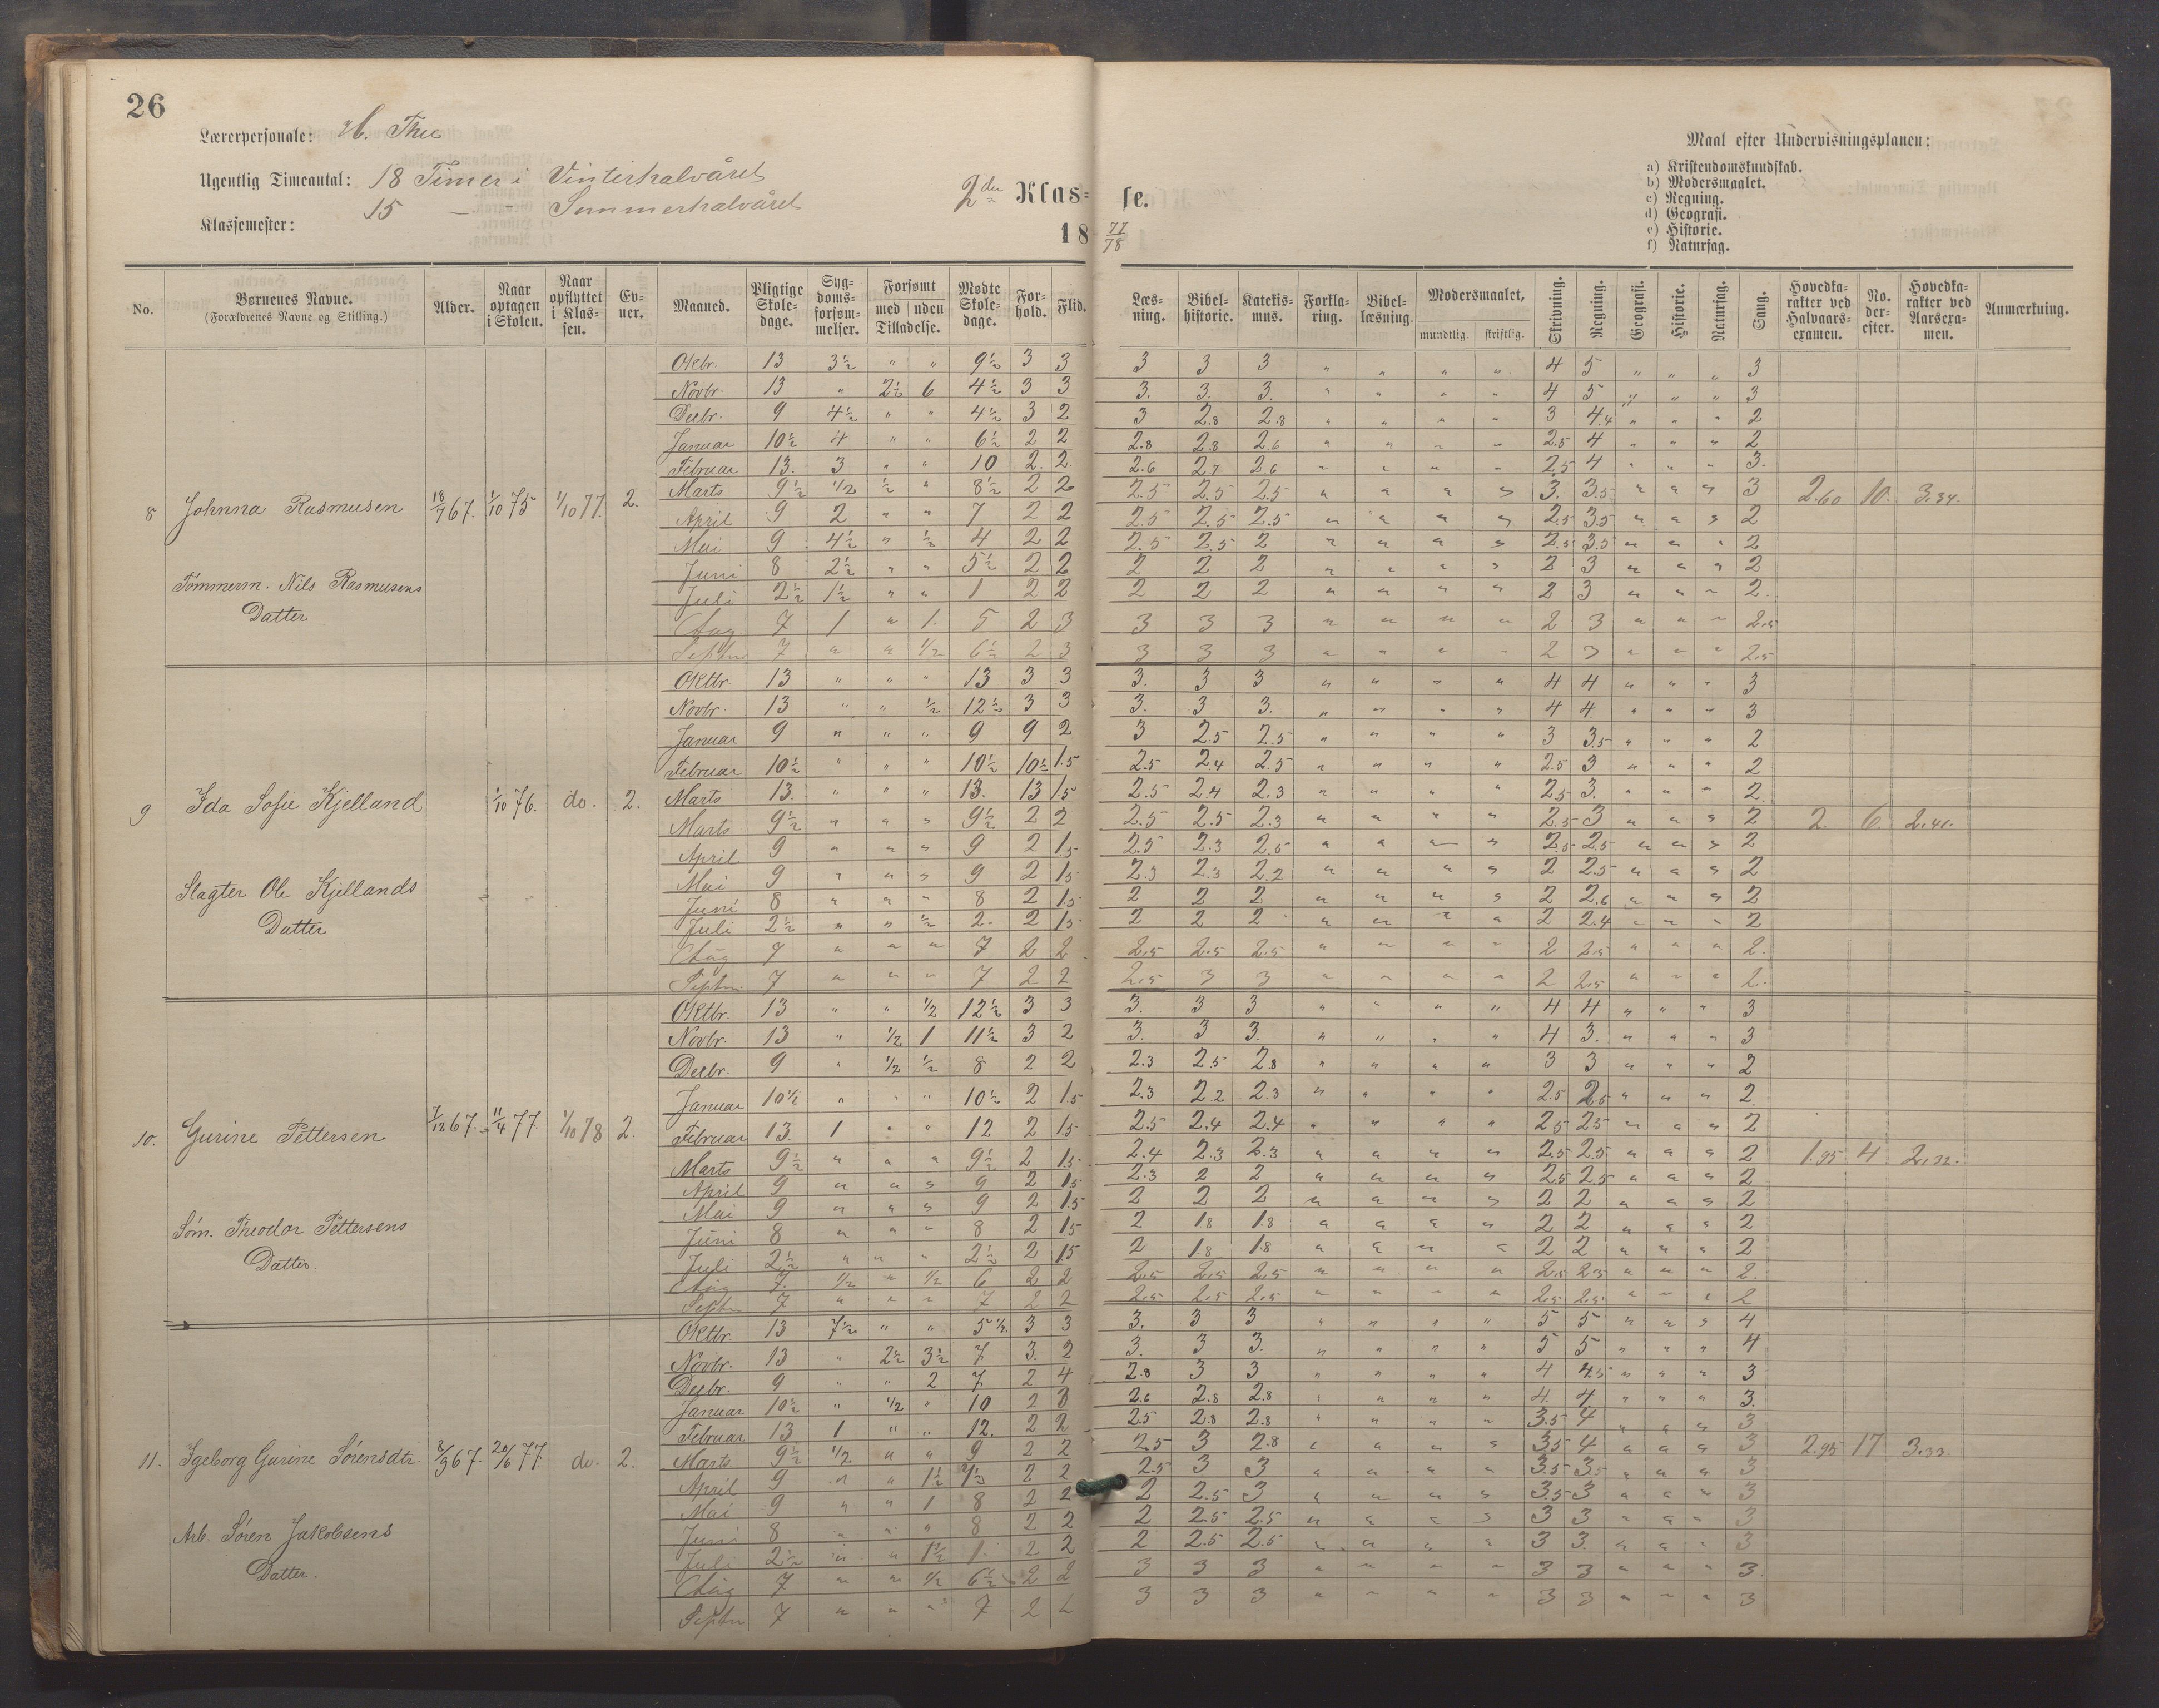 26
Lærerpersonale: H. Thu
Ugentlig Timeantal: 18 Timer i Vinterhalvåret
15 — " — Sommerhalvåret
Klassemester:
2den Klas=se.
18 77/78
Maal efter Undervisningsplanen:
a) Kristendomskundskab.
b) Modersmaalet.
c) Regning.
d) Geografi.
e) Historie.
f) Naturfag.
No. Børnenes Navne. (Forældrenes Navne og Stilling.) Alder. Naar optagen i Skolen. Naar opflyttet i Klassen. Evner. Maaned. Pligtige Skoledage. Sygdomsforsømmelser. Forsømt med uden Tilladelse. Mødte Skoledage. Forhold. Flid. Læsning. Bibelhistorie. Katekismus. Forklaring. Bibellæsning. Modersmaalet, mundtlig. skriftlig. Skrivning. Regning. Geografi. Historie. Naturfag. Sang. Hovedkarakter ved Halvaarsexamen. No. derefter. Hovedkarakter ved Aarsexamen. Anmærkning.
Oktbr. 13 3½ " " 9½ 3 3 3 3 3 " " " " 4 5 " " " 3
Novbr. 13 " 2½ 6 4½ 3 3 3. 3. 3. " " " " 4 5 " " " 3
Decbr. 9 4½ " " 4½ 3 2 3 2.8 2.8 " " " " 3 4.4 " " " 2
Januar 10½ 4 " " 6½ 2 2 2.8 2.8 2.6 " " " " 2.5 4 " " " 2
Februar 13. 3 " " 10 2. 2. 2.6 2.7 2.6 " " " " 2.5 4 " " " 3.
8 Johnna Rasmusen 18/7 67. 1/10 75 1/10 77. 2. Marts 9½ 1/2 ½ " 8½ 2 2 2.5 2.5 2.5 " " " " 3. 3.5 " " " 3 2.60 10. 3.34.
April 9 2 " " 7 2 2 2.5 2.5 2.5 " " " " 2.5 3.5 " " " 2
Mai 9 4½ " ½ 4 2 2 2.5 2.5 2 " " " " 2.5 3.5 " " " 2
Juni 8 2½ " " 5½ 2 2 2 2 2 " " " " 2 3 " " " 2
Tømmerm. Nils Rasmusens
Juli 2½ 1½ " " 1 2 2 2 2 2 " " " " 2 3 " " " 2.
Datter
Aug. 7 1 " 1. 5 2 3 3 3 3 " " " " 2 3 " " " 2.5
Septbr 7 " " 1/2 6½ 2 3 3 3 3 " " " " 2 3 " " " 2.5
Oktbr. 13 " " " 13 3 3 3. 3 3 " " " " 4 4 " " " 3
Novbr. 13 " " ½ 12½ 3 3 3. 3 3. " " " " 4 4 " " " 3
Januar 9 " " " 9 9 2 3 2.5 2.5 " " " " 3 3.5 " " " 2
Februar 10½ " " " 10½ 10½ 1.5 2.5 2.4 2.5 " " " " 2.5 3 " " " 2
9 Ida Sofie Kjelland 1/10 76. do. 2. Marts 13. " " " 13. 13 1.5 2.5 2.4 2.3 " " " " 2.5 3. " " " 2.
Marts 9½ " " " 9½ 2 2 2.5 2.5 2.3 " " " " 2.5 3 " " " 2 2. 6. 2.41.
April 9 " " " 9 2 1.5 2.5 2.3 2.5 " " " " 2.5 2.5 " " " 2
Mai 9 " " " 9 2 1.5 2.3 2.3 2.2 " " " " 2 2.5 " " " 2
Slagter Ole Kjellands
Juni 8 " " " 8 2 1.5 2 2 2 " " " " 2 2.6 " " " 2
Datter
Juli 2½ " " ½ 2. 2 1.5 2 2 2 " " " " 2 2.4 " " " 2
Aug 7 " " " 7 2 2 2.5 2.5 2.5 " " " " 2 2.5 " " " 2.
Septbr. 7 " " " 7 2 2 2.5 3 3 " " " " 2 2.5 " " " 2.
Oktbr. 13 " " 1/2 12½ 3 3 3. 3 3 " " " " 4 4 " " " 3
Novbr. 13 " 1/2 1 11½ 3 2 3. 3 3. " " " " 4 3. " " " 3
Decbr. 9 " 1/2 ½ 8 2 2 2.3 2.5 2.8 " " " " 3 3 " " " 2
Januar 10½ " " " 10½ 2 1.5 2.3 2.2 2.3 " " " " 2.5 2.5 " " " 2.
10. Gurine Pettersen 7/12 67. 11/4 77. 1/10 78 2. Februar 13. 1 " " 12 2 1.5 2.5 2.4 2.4 " " " " 2.5 2.5 " " " 2
Marts 9½ " " " 9½ 2 1.5 2.4 2.3 2.3 " " " " 2.5 2.5 " " " 2 1.95 4 2.32.
April 9 " " " 9 2 1.5 2.3 2 2 " " " " 2.5 2.5 " " " 2
Mai 9 " " " 9 2 1.5 2 2 2 " " " " 2 2 " " " 2
Søm. Theodor Pettersens
Juni 8 " " " 8 2 1.5 2 1.8 1.8 " " " " 2 2 " " " 2
Datter.
Juli 2½ " " " 2½ 2 1.5 2 1.8 1.8 " " " " 2 2 " " " 2
Aug 7. 1/2 " 1/2 6 2 2 2.5 2.5 2.5 " " " " 2.5 2.5 " " " 2.
Septbr 7 " " " 7 2 2 2.5 2.5 2.5 " " " " 2.5 2.5 " " " 2
Oktbr 13 7½ " " 5½ 3 3 3. 3 3 " " " " 5 5 " " " 4
Novbr. 13 " 2½ 3½ 7 3. 2 3. 3 3. " " " " 5 5 " " " 4
Decbr. 9 " " 2 7 2 4 2.8 3 3 " " " " 4 4.5 " " " 3
Januar 10½ " 1/2 " 10 2 3 2.6 2.8 2.8 " " " " 4. 4. " " " 3.
Februar 13 1 " " 12. 2 2 2.5 2.8 2.8 " " " " 3.5 4 " " " 3
11. Igeborg Gurine Sørensdtr. 3/9 67. 20/6 77. do. 2. Marts 9½ 1/2 " " 9 2 2 2.5 3 2.8 " " " " 3.5 4 " " " 3 2.95 17 3.33.
April 9 " " 1½ 7½ 2 2 2.5 3 3 " " " " 3.5 3.5 " " " 3
Mai 9 " " 1 8 2 2 2 2.5 3 " " " " 3.5 3 " " " 3
Arb. Søren Jakobsens
Juni 8 " " " 8 2 2 2 2.5 2.5 " " " " 3 3 " " " 3
Juli 2½ " " 1½ 1. 2 2 2 2.5 2.5 " " " " 3 3. " " " 3
Datter.
Aug 7 " " 1/2 6½ 2 2 3 3 3 " " " " 3 3 " " " 3.
Septbr 7 " " " 7 2 2 3 3 3 " " " " 3 3 " " " 3